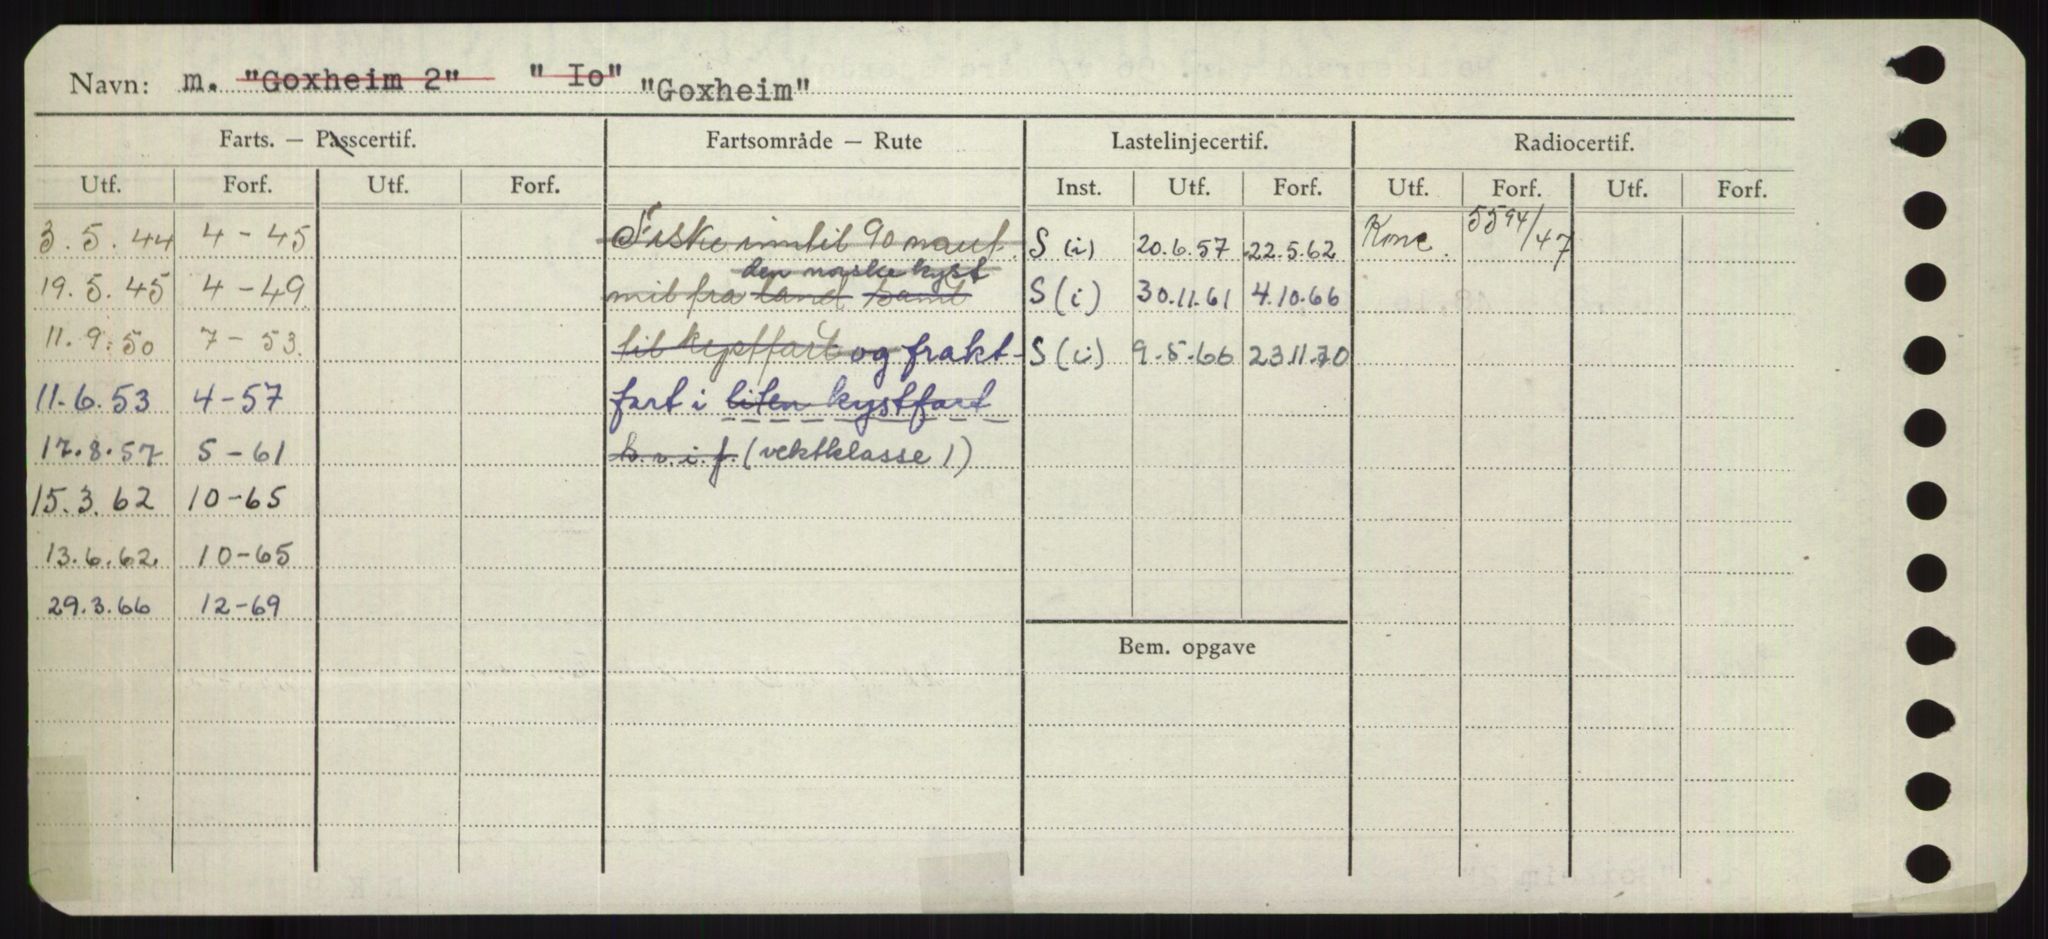 Navn: m. "Goxheim 2" "Io" "Goxheim"
Farts. — Passcertif. Fartsområde — Rute Lastelinjecertif. Radiocertif.
Utf. Forf. Utf. Forf. Inst. Utf. Forf. Utf. Forf. Utf. Forf.
3.5.44 4-45 Fiske inntil 90 naut. S (i) 20.6.57 22.5.62 Konc. 5594/47
den norske kyst
19.5.45 4-49 mil fra land samt S (i) 30.11.61 4.10.66
11.9.50 7-53. til kystfart og frakt- S (i) 9.5.66 23.11.70
11.6.53 4-57 fart i liten kystfart
17.8.57 5-61 k.v.i.f. (vektklasse 1)
15.3.62 10-65
13.6.62 10-65
29.3.66 12-69
Bem. opgave